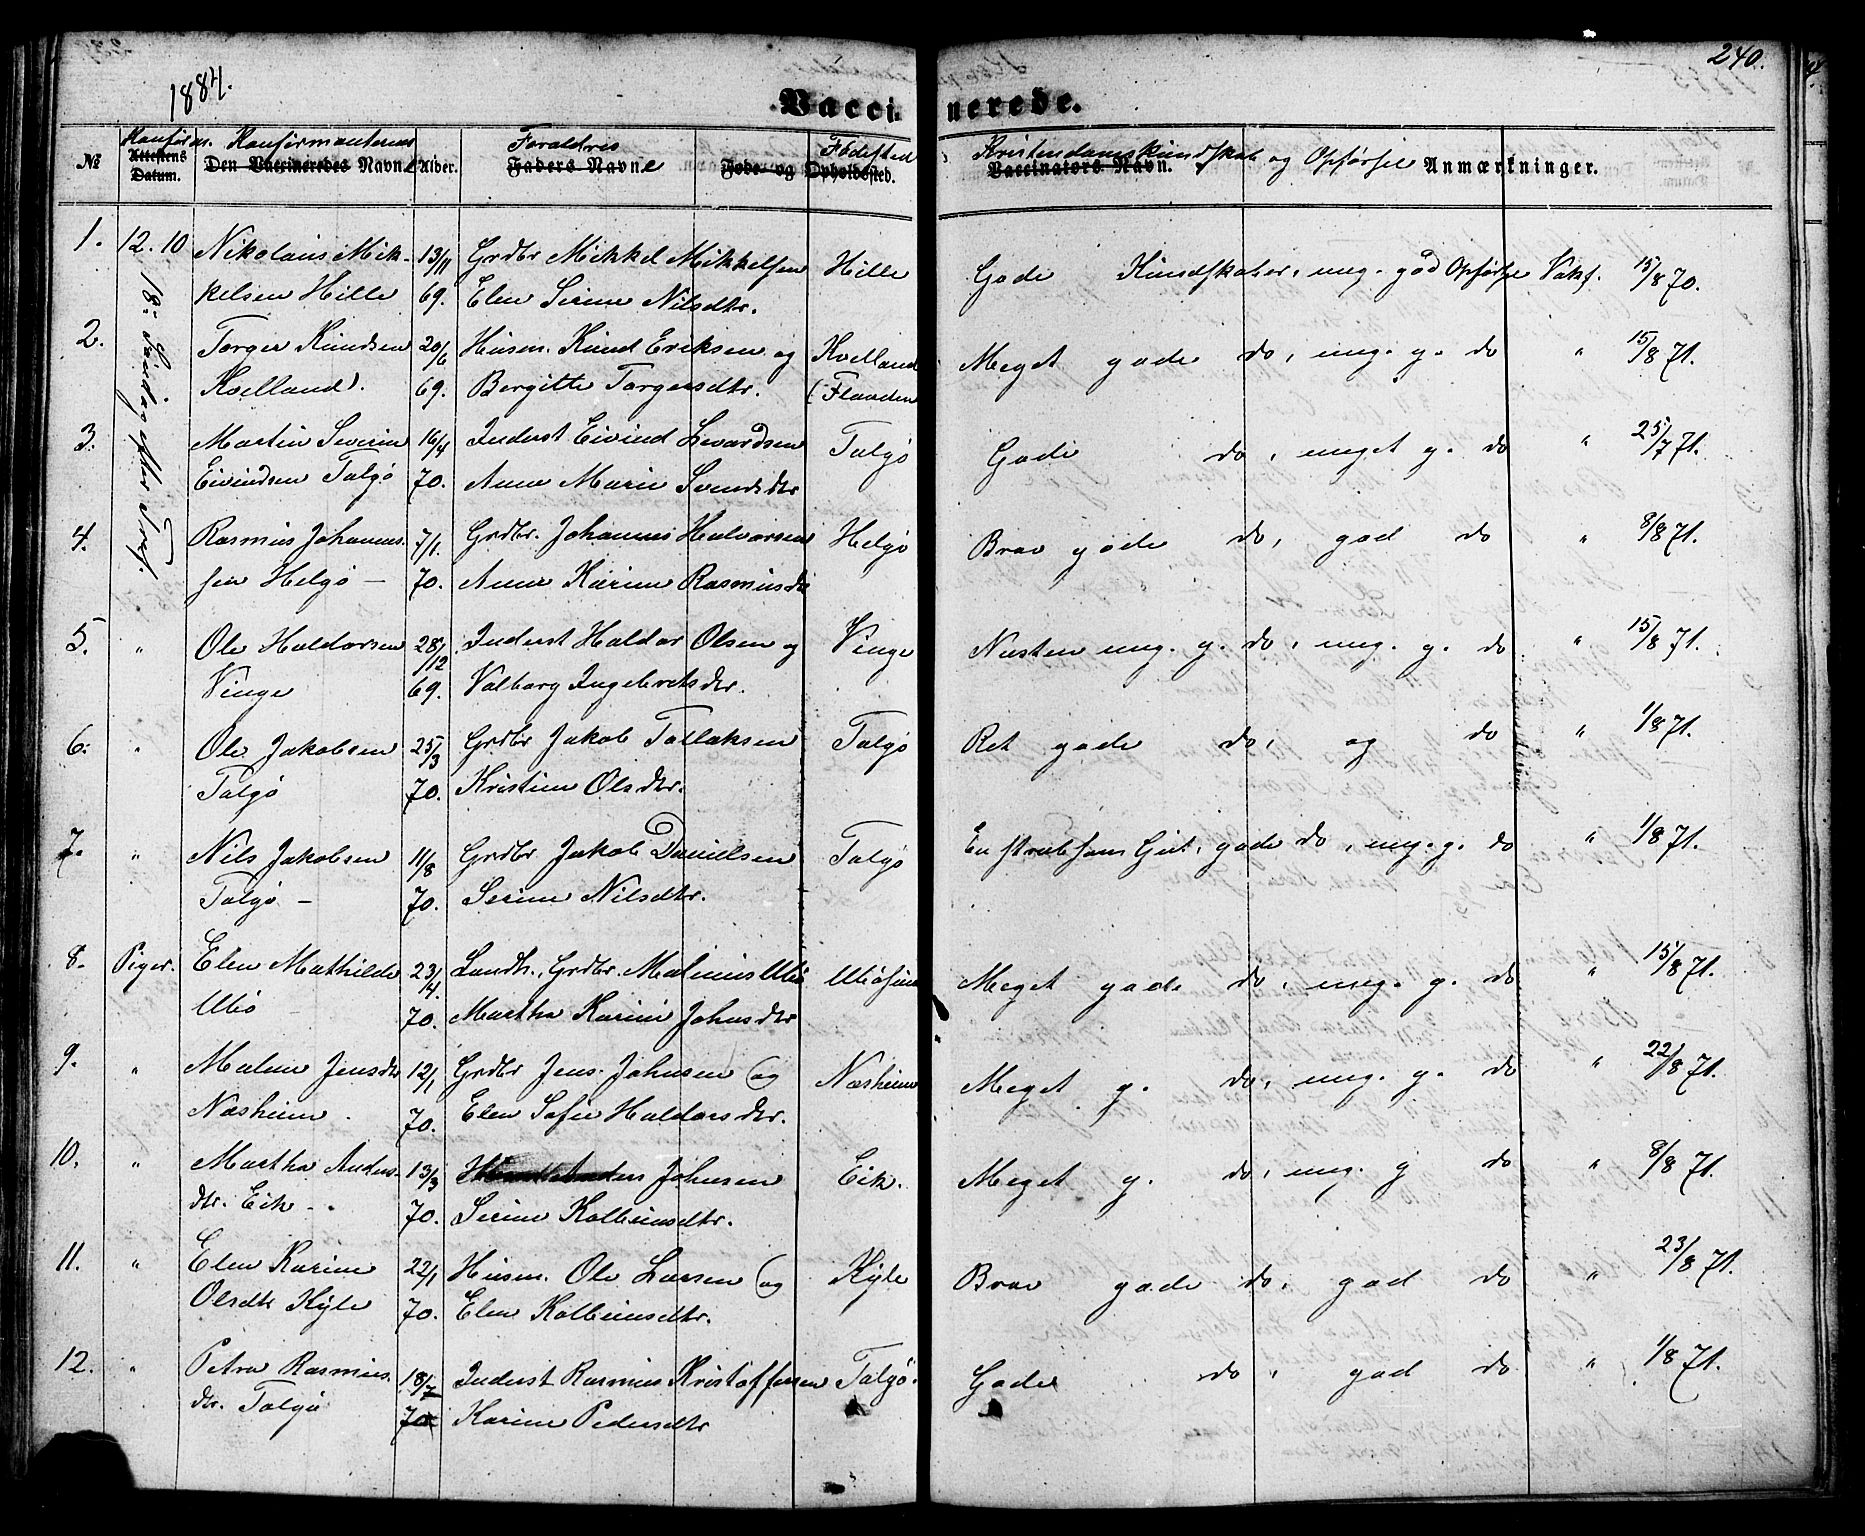 1884.
240.
Vaccinerede.
No Konførm. Konførmanternes Forældres Fødested Kristendomskundskab og Opførsel
Attestens Datum. Den Vaccineredes Navn Alder. Faders Navne Føde- og Opholdssted. Vaccinators Navn. Anmærkninger.
1. 12.10 Nikolaus Mik- 13/11 Grdbr Mikkel Mikkelsen Hille Gode Kundskaber, meg. god Opførsel Vaks. 15/8 70.
kelsen Hille 69. Elen Serine Nilsdtr.
18: Søndag efter Tref.
2. Torger Knudsen 20/6 Husm. Knud Eriksen og Kvelland Meget gode do, meg. g. do " 15/8 71.
Kvelland. 69. Bergitte Torgersdtr. (Flaaden
3. Martin Severin 16/4 Inderst Eivind Levardsen Talgø Gode do, meget g. do " 25/7 71.
Eivindsen Talgø 70. Anne Marie Svendsdtr
4. Rasmus Johannes- 7/1. Grdbr. Johannes Halvorsen Helgø Brav gode do, god do " 8/8 71.
sen Helgø - 70. Anne Karine Rasmusdtr
5. " Ole Haldorsen 28/12 Inderst Haldor Olsen og Vinge Næsten meg. g. do, meg. g. do " 15/8 71.
Vinge 69. Valborg Ingebretsdtr.
6. " Ole Jakobsen 25/3 Grdbr Jakob Tollaksen Talgø Ret gode do, og do " 1/8 71.
Talgø 70. Kristine Olsdtr.
7. " Nils Jakobsen 11/8 Grdbr Jakob Danielsen Talgø En stræbsom Gut, gode do, meg. g. do " 1/8 71.
Talgø - 70. Serine Nilsdtr.
8. Piger. Elen Mathilde 23/4. Landh., Grdbr. Malinius Utiø Meget gode do, meg. g. do " 15/8 71.
Utiø 70. Martha Karine Johnsdtr
9. " Malene Jensdtr 12/1 Grdbr Jens Johnsen og Næsheim Meget g. do, meg. g. do " 22/8 71.
Næsheim. 70. Elen Sofie Haldorsdtr.
10. " Martha Anders- 13/3 Johnsen Eik. Meget g. do, meg. g do " 8/8 71.
dtr. Eik - 70. Serine Kolbeinsdtr.
11. " Elen Karine 22/1 Husm. Ole Larsen og Kyle Brav gode do, god do " 23/8 71.
Olsdtr Kyle 70. Elen Kolbeinsdtr.
12. " Petra Rasmus- 18/7 Inderst Rasmus Kristoffersen Talgø. Gode do, god do " 1/8 71.
dtr. Talgø 70 Karine Pedersdtr